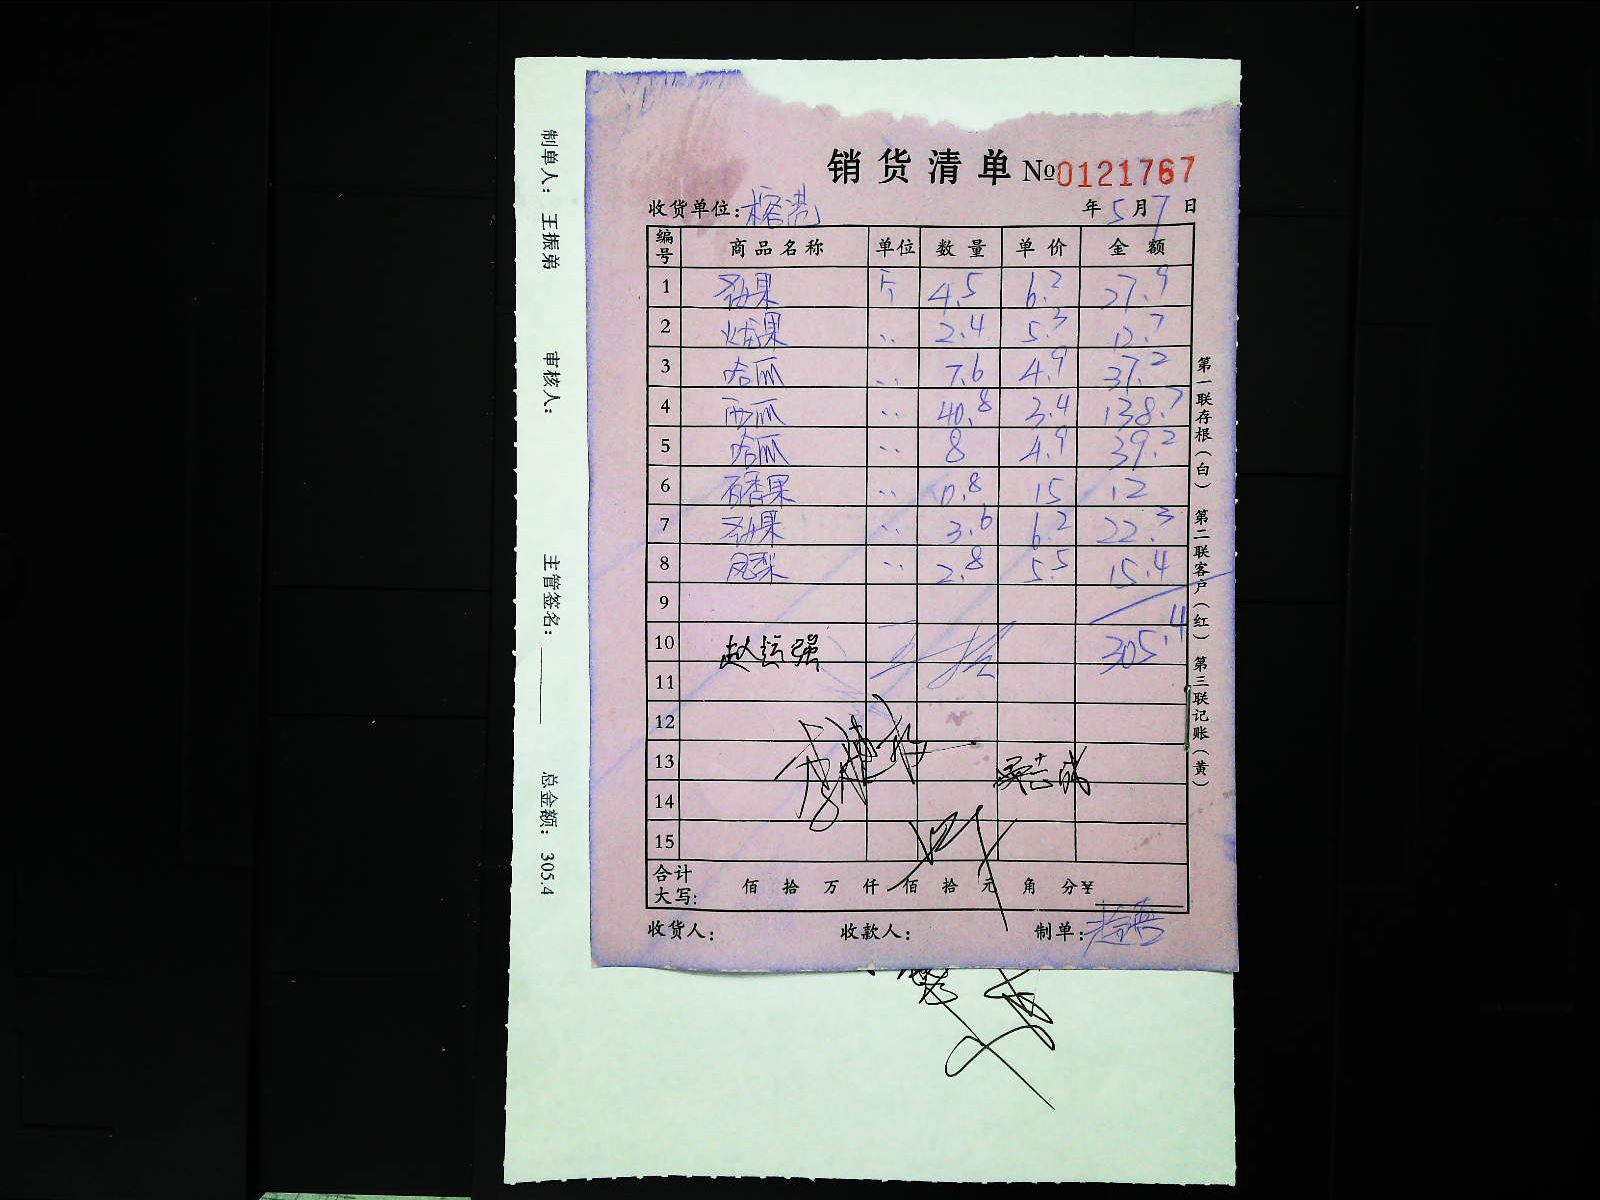 制单人： 王振弟 审核人： 主管签名： 总金额： 305.4
销货清单 №0121767
收货单位： 榕港 年5月7日
编号 商品名称 单位 数量 单价 金额
1 斤 4.5 6.2 27.9
2 2.4 5.3 12.7
3 哈瓜 7.6 4.9 37.2
4 西瓜 40.8 3.4 138.7
5 哈瓜 8 4.9 39.2
6 百香果 0.8 15 12
7 3.6 6.2 22.3
8 凤梨 2.8 5.5 15.4
9
10 赵运强 305.4
11
12
13
14
15
合计大写： 佰 拾 万 仟 佰 拾 元 角 分 ¥
收货人： 收款人： 制单：
第一联存根（白） 第二联客户（红） 第三联记账（黄）